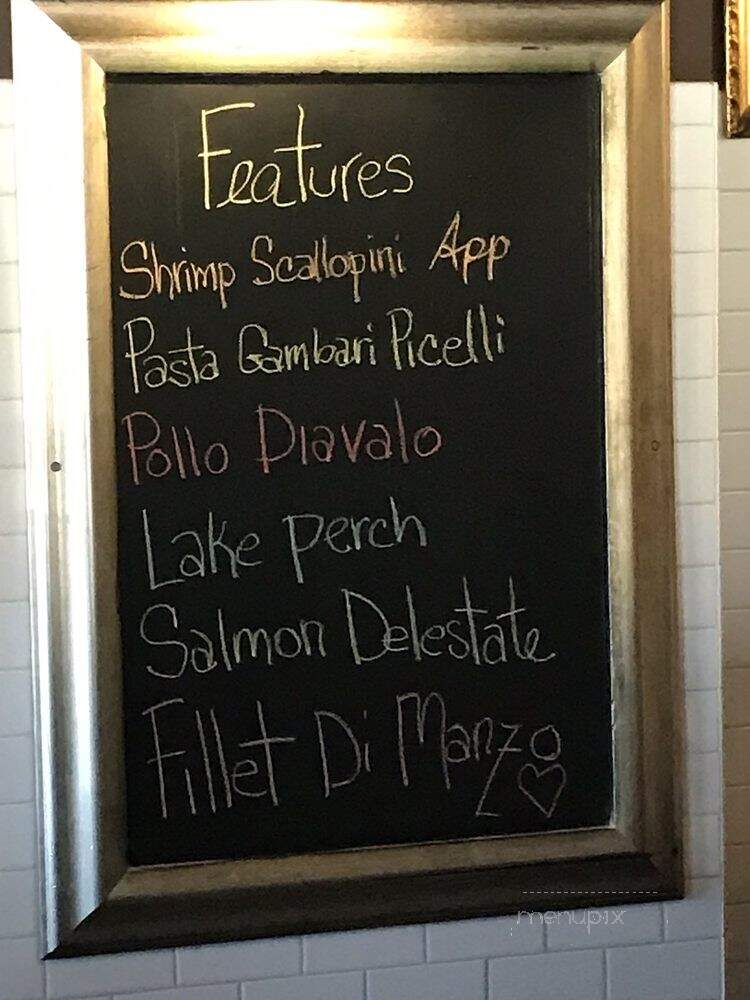 Features
Shrimp Scallopini App
Pasta Gambari Picelli
Pollo Diavalo
Lake Perch
Salmon Delestate
Fillet Di Manzo
menupix